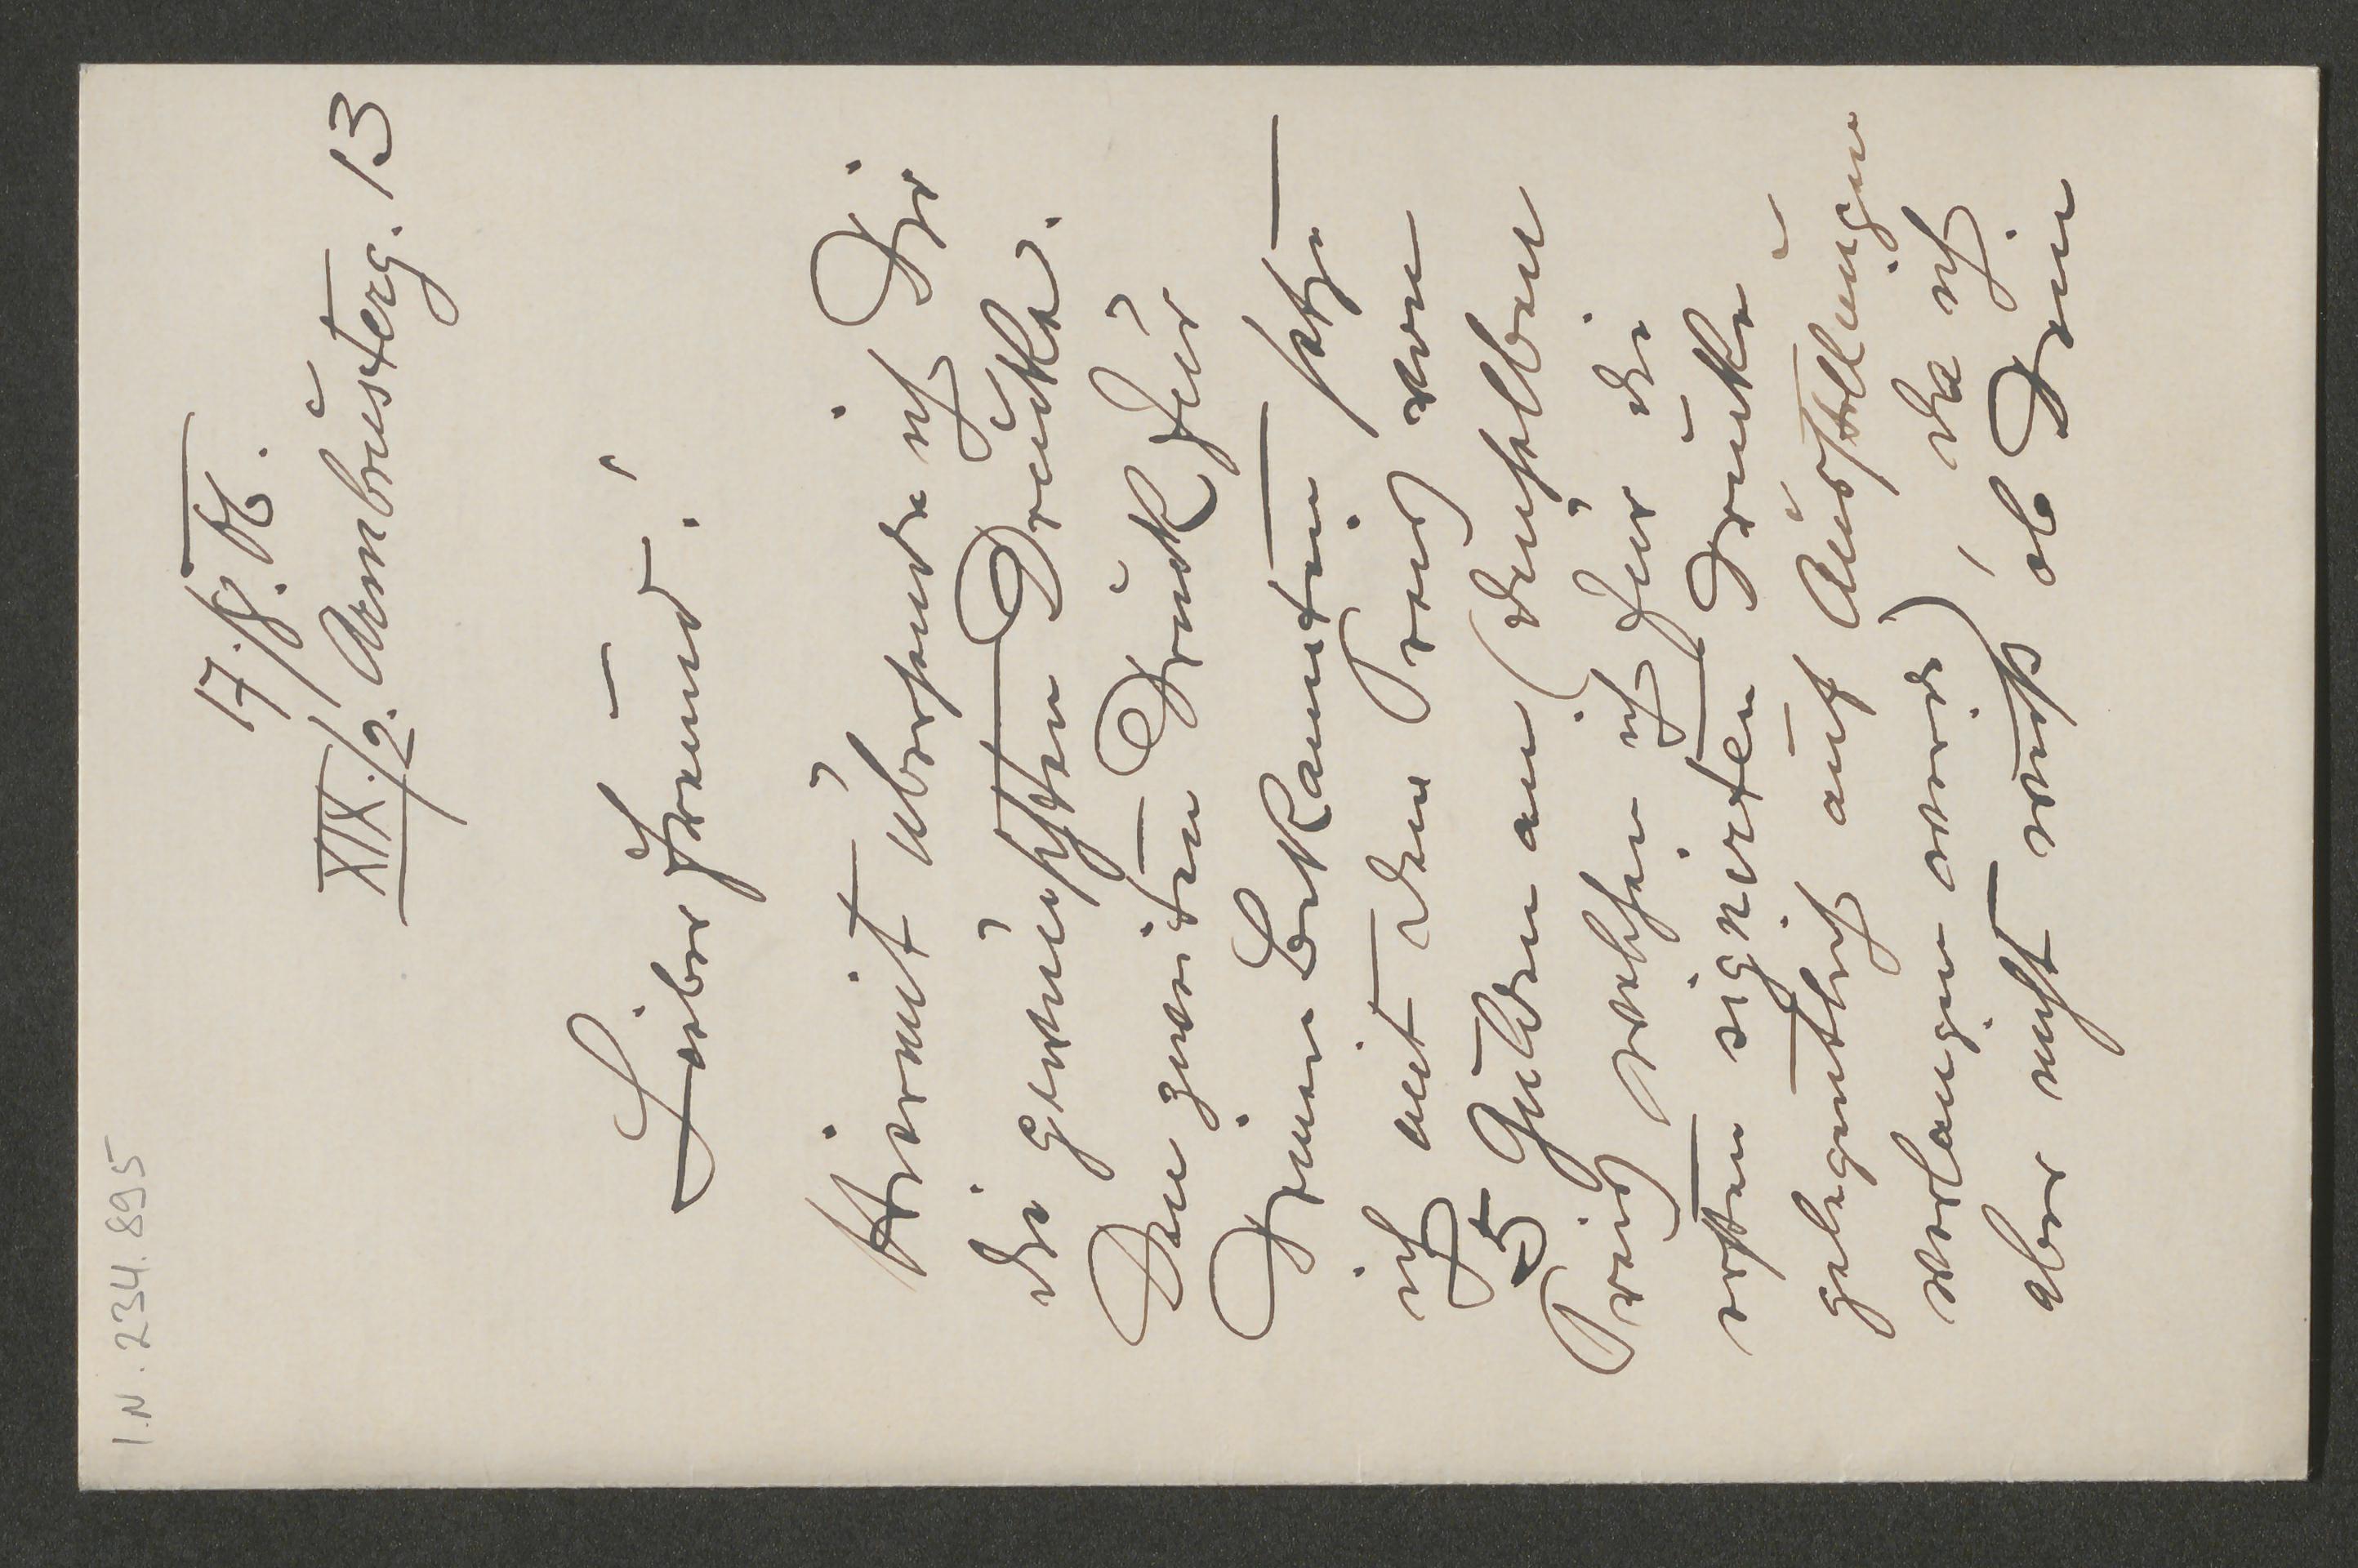 I.N. 234.895
17./8. 96.
XIX./2. Armbrusterg. 13
Lieber Freund!
Hiermit übersende ich Dir
die gewünschten Drucke.
Den zweiten Druck für
Deinen Bekannten setze
ich mit dem Preis von
5 Gulden an (denselben
Preis welchen ich für die
ersten signierten Drucke
gelegentlich auf Ausstellungen
verlangen werde), da ich
aber nicht weiß, ob Dein